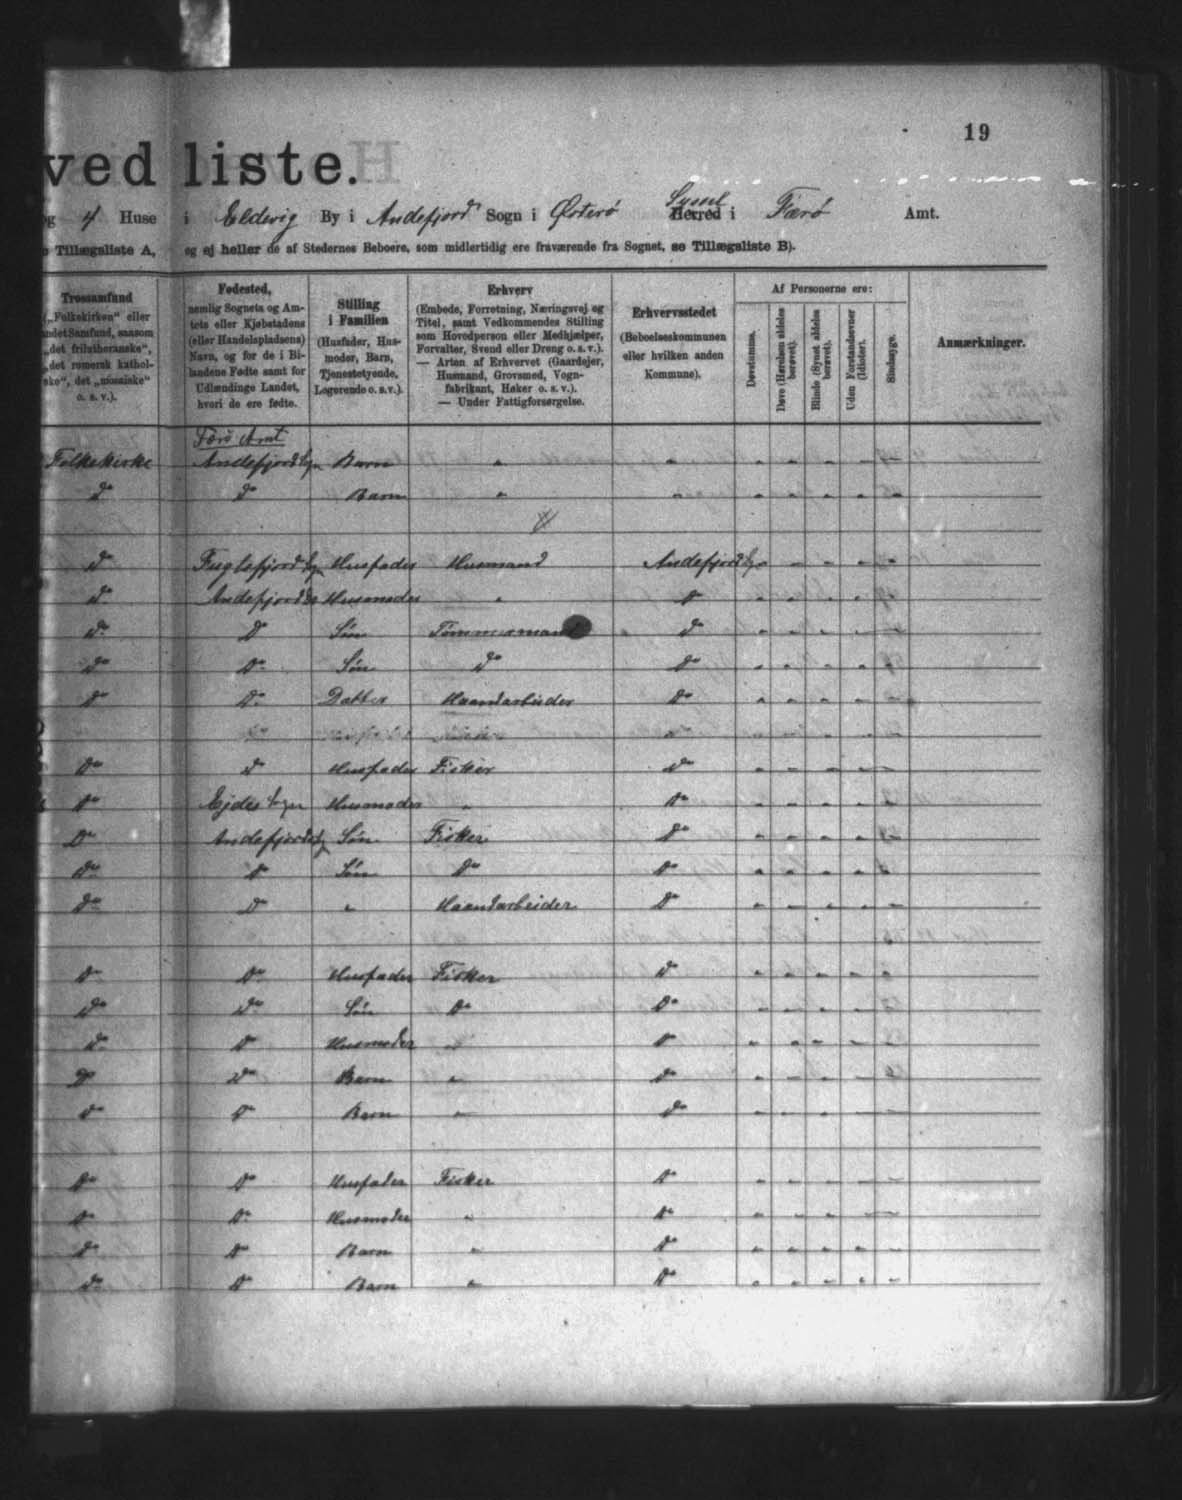 19
ved liste.
og 4 Huse i Eldevig By i Andefjord Sogn i Østerø Syssel Herred i Færø Amt.
Tillægsliste A, og ej heller de af Stedernes Beboere, som midlertidig ere fraværende fra Sognet, se Tillægsliste B).
Trossamfund
(„Folkekirken“ eller
andet Samfund, saasom
„det frilutheranske“,
„det romersk kathol-
ske“, det „mosaiske“
o. s. v.).
Fødested,
nemlig Sognets og Am-
tets eller Kjøbstadens
(eller Handelspladsens)
Navn, og for de i Bi-
landene Fødte samt for
Udlændinge Landet,
hvori de ere fødte.
Stilling
i Familien
(Husfader, Hus-
moder, Barn,
Tjenestetyende,
Logerende o. s. v.).
Erhverv
(Embede, Forretning, Næringsvej og
Titel, samt Vedkommendes Stilling
som Hovedperson eller Medhjælper,
Forvalter, Svend eller Dreng o. s. v.).
— Arten af Erhvervet (Gaardejer,
Husmand, Grovsmed, Vogn-
fabrikant, Høker o. s. v.).
— Under Fattigforsørgelse.
Erhvervsstedet
(Beboelseskommunen
eller hvilken anden
Kommune).
Af Personerne ere:
Døvstumme.
Døve (Hørelsen aldeles berøvet).
Blinde (Synet aldeles berøvet).
Uden Forstandsevner (Idioter).
Sindssyge.
Anmærkninger.
Færø Amt
Folkekirke Andefjords Sogn Barn " " " " " " "
do do Barn " " " " " " "
do Fuglefjord Sogn Husfader Husmand Andefjord Sogn " " " " "
do Andefjords Husmoder " do " " " " "
do do Søn Tømmermand do " " " " "
do do Søn do do " " " " "
do do Datter Haandarbeider do " " " " "
do do Husfader Fisker do " " " " "
do Ejdes Sogn Husmoder " do " " " " "
do Andefjords Sogn Søn Fisker do " " " " "
do do Søn do do " " " " "
do do " Haandarbeider do " " " " "
do do Husfader Fisker do " " " " "
do do Søn do do " " " " "
do do Husmoder " do " " " " "
do do Barn " do " " " " "
do do Barn " do " " " " "
do do Husfader Fisker do " " " " "
do do Husmoder " do " " " " "
do do Barn " do " " " " "
do do Barn " do " " " " "